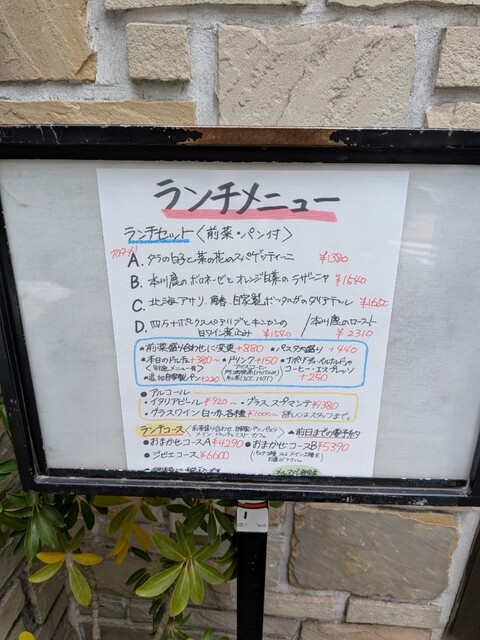 ランチメニュー
ランチセット〈前菜・パン付〉
A. タラの白子と菜の花のスパゲッティーニ ¥1380
B. 本川鹿のボロネーゼとオレンジ白菜のラザーニャ ¥1540
C. 北海アサリ、自家製ボッタルガのタリアテッレ ¥1650
D. 四万十ポークスペアリブとキンカンの白ワイン煮込み ¥1540 / 本川鹿のロースト ¥2310
●前菜盛り合わせに変更+880 ●パスタ大盛り +440
●本日のドルチェ+380〜 ●ドリンク+150 ●ナポリターナペルナルドの
〈別途メニュー有〉 アイスコーヒー コーヒー・エスプレッソ
●追加自家製パン+220 紅茶(ICE,HOT) +250
● アルコール
・イタリアビール ¥920〜 ・グラススプマンテ ¥1380
・グラスワイン白・赤 各種 ¥1000〜 詳しくはスタッフまで。
ランチコース〈前菜盛り合わせ、自家製パン、パスタ メイン、ドルチェミスト カフェ〉 ⇒前日までの要予約
●おまかせコースA ¥4290 ●おまかせコースB ¥5390
●ジビエコース ¥6600